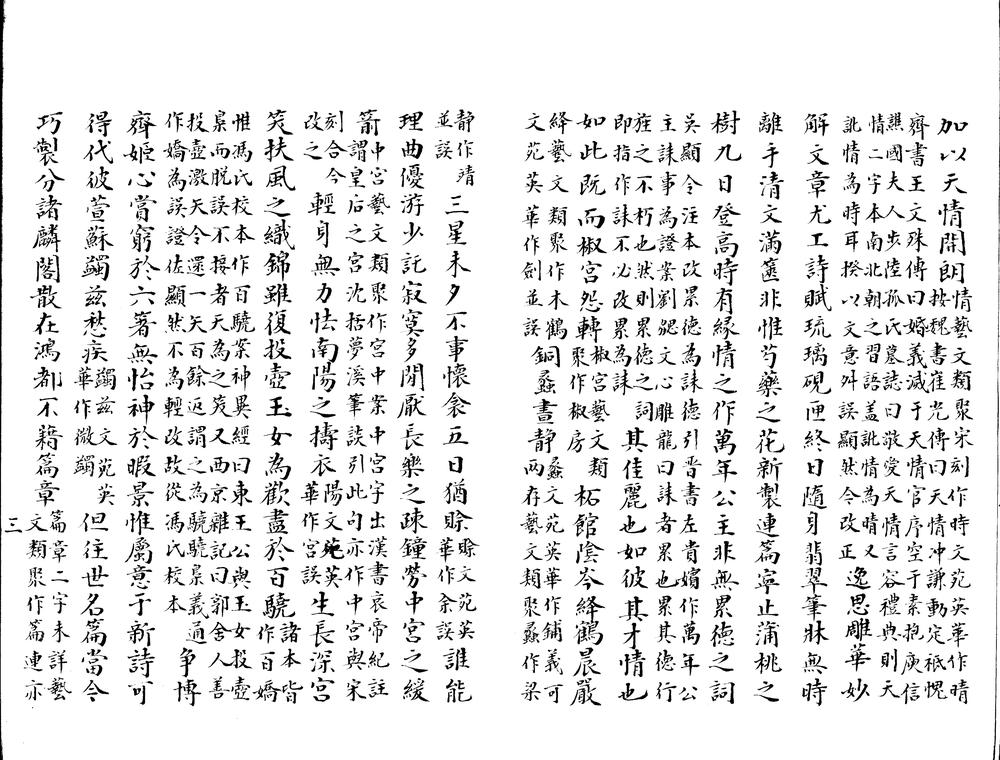 加以天情開朗情藝文類聚宋刻作時文苑英華作晴
按魏書崔光傳曰天情沖謙動定祗愧
齊書王文殊傳曰婚義滅于天情官序空于素抱庾信
譙國夫人步陸孤氏墓誌曰敬愛天情言容禮典則天
情二字本南北朝之習語蓋訛情為晴又
訛情為時耳揆以文意舛誤顯然今改正逸思雕華妙
解文章尤工詩賦琉璃硯匣終日隨身翡翠筆牀無時
離手清文滿篋非惟芍藥之花新製連篇寧止蒲桃之
樹九日登高時有緣情之作萬年公主非無累德之詞
吳顯令注本改累德為誄德引晉書左貴嬪作萬年公
主誄事為證案劉勰文心雕龍曰誄者累也累其德行
旌之不朽也然則累德之詞
即指作誄不必改累為誄其佳麗也如彼其才情也
如此既而椒宮怨轉椒宮藝文類聚作椒房柘館陰岑絳鶴晨嚴
絳藝文類聚作木鶴
文苑英華作劍並誤銅蠡晝靜蠡文苑英華作鋪義可
兩存藝文類聚蠡作梁
靜作清並誤三星未夕不事懷衾五日猶賒賒文苑英華作余誤誰能
理曲優游少託寂寞多閒厭長樂之疎鐘勞中宮之緩
箭中宮藝文類聚作宮中案中宮字出漢書哀帝紀註
謂皇后之宮沈括夢溪筆談引此句亦作中宮與宋
刻合今改之輕身無力怯南陽之擣衣陽文苑英華作宮誤生長深宮
笑扶風之織錦雖復投壺玉女為歡盡於百驍諸本皆作百嬌
惟馮氏校本作百驍案神異經曰東王公與玉女投壺
梟而脫誤不接者天為之笑又西京雜記曰郭舍人善
投壺激矢令還一矢百餘返謂之為驍驍梟義通
作嬌為誤證佐顯然不為輕改故從馮氏校本爭博
齊姬心賞窮於六箸無怡神於暇景惟屬意于新詩可
得代彼萱蘇蠲茲愁疾蠲茲文苑英華作微蠲但往世名篇當今
巧製分諸麟閣散在鴻都不藉篇章篇章二字未詳藝
文類聚作篇連亦
三